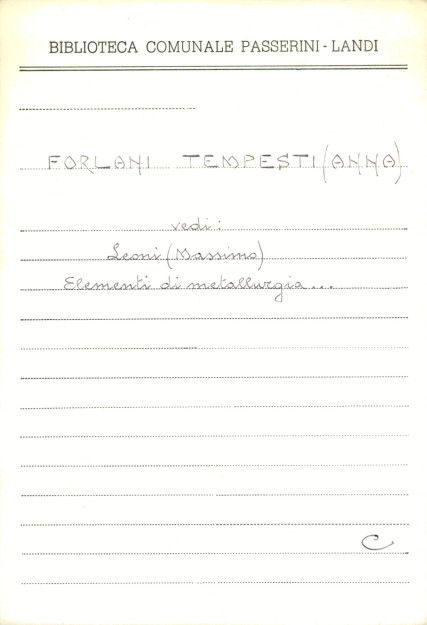 BIBLIOTECA COMUNALE PASSERINI - LANDI
FORLANI TEMPESTI (ANNA)
vedi:
Leoni (Massimo)
Elementi di metallurgia...
C